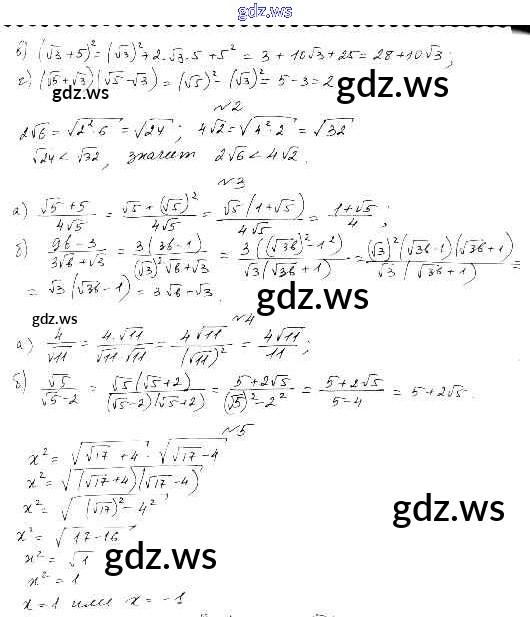 gdz.ws
в) (√3 + 5)² = (√3)² + 2·√3·5 + 5² = 3 + 10√3 + 25 = 28 + 10√3;
г) (√5 + √3)(√5 - √3) = (√5)² - (√3)² = 5 - 3 = 2
gdz.ws
gdz.ws
№2
2√6 = √(2²·6) = √24; 4√2 = √(4²·2) = √32
√24 < √32, значит 2√6 < 4√2.
№3
а) (√5 + 5)/(4√5) = (√5 + (√5)²)/(4√5) = (√5(1 + √5))/(4√5) = (1 + √5)/4;
б) (9b - 3)/(3√b + √3) = (3(3b - 1))/((√3)²√b + √3) = (3((√3b)² - 1²))/(√3(√3b + 1)) = ((√3)²(√3b - 1)(√3b + 1))/(√3(√3b + 1)) =
= √3(√3b - 1) = 3√b - √3.
gdz.ws
gdz.ws
№4
а) 4/√11 = (4·√11)/(√11·√11) = (4√11)/(√11)² = (4√11)/11;
б) √5/(√5 - 2) = (√5(√5 + 2))/((√5 - 2)(√5 + 2)) = (5 + 2√5)/((√5)² - 2²) = (5 + 2√5)/(5 - 4) = 5 + 2√5.
№5
x² = √(√17 + 4) · √(√17 - 4)
x² = √((√17 + 4)(√17 - 4))
x² = √((√17)² - 4²)
gdz.ws
x² = √(17 - 16)
x² = √1
gdz.ws
x² = 1
x = 1 или x = -1